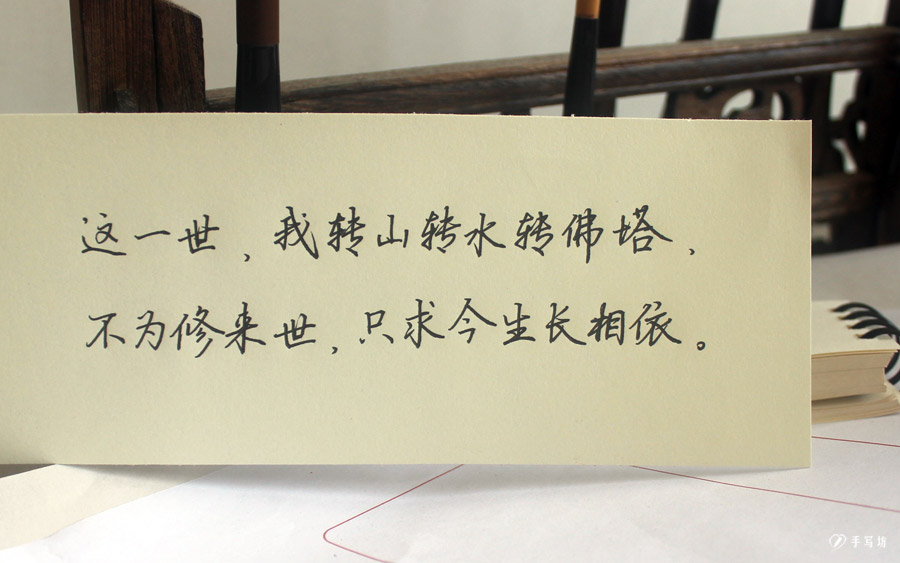 这一世，我转山转水转佛塔，
不为修来世，只求今生长相依。
手写坊